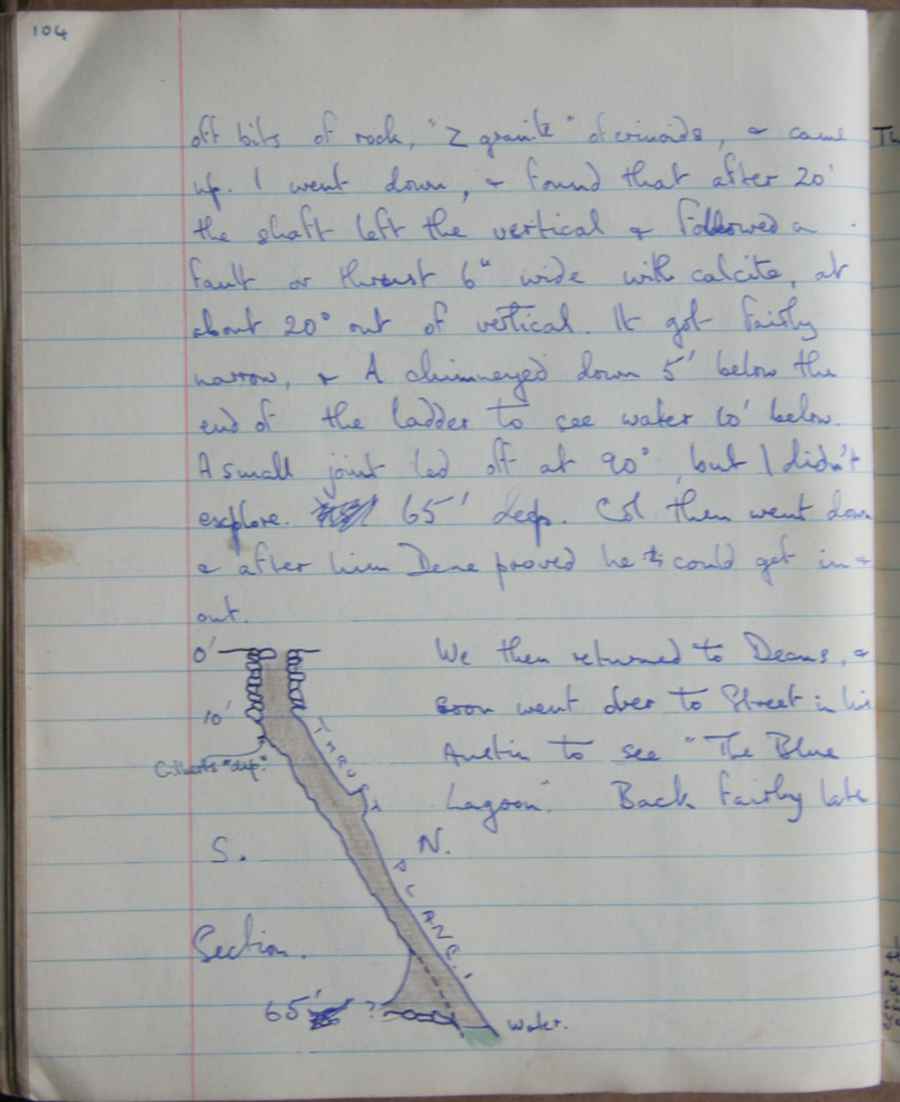 104
off bits of rock, "2 granite" of crinoids, & came
up. I went down, & found that after 20'
the shaft left the vertical & followed a
fault or thrust 6" wide with calcite, at
about 20° out of vertical. It got fairly
narrow, & I chimneyed down 5' below the
end of the ladder to see water 10' below.
A small joint led off at 90° but I didn't
explore. 65' deep. Col then went down
& after him Dene proved he could get in &
out.
0'
We then returned to Deans, &
soon went over to Street in his
10'
Austin to see "The Blue
Lagoon". Back fairly late
S. N.
Section.
65' ?
Water.